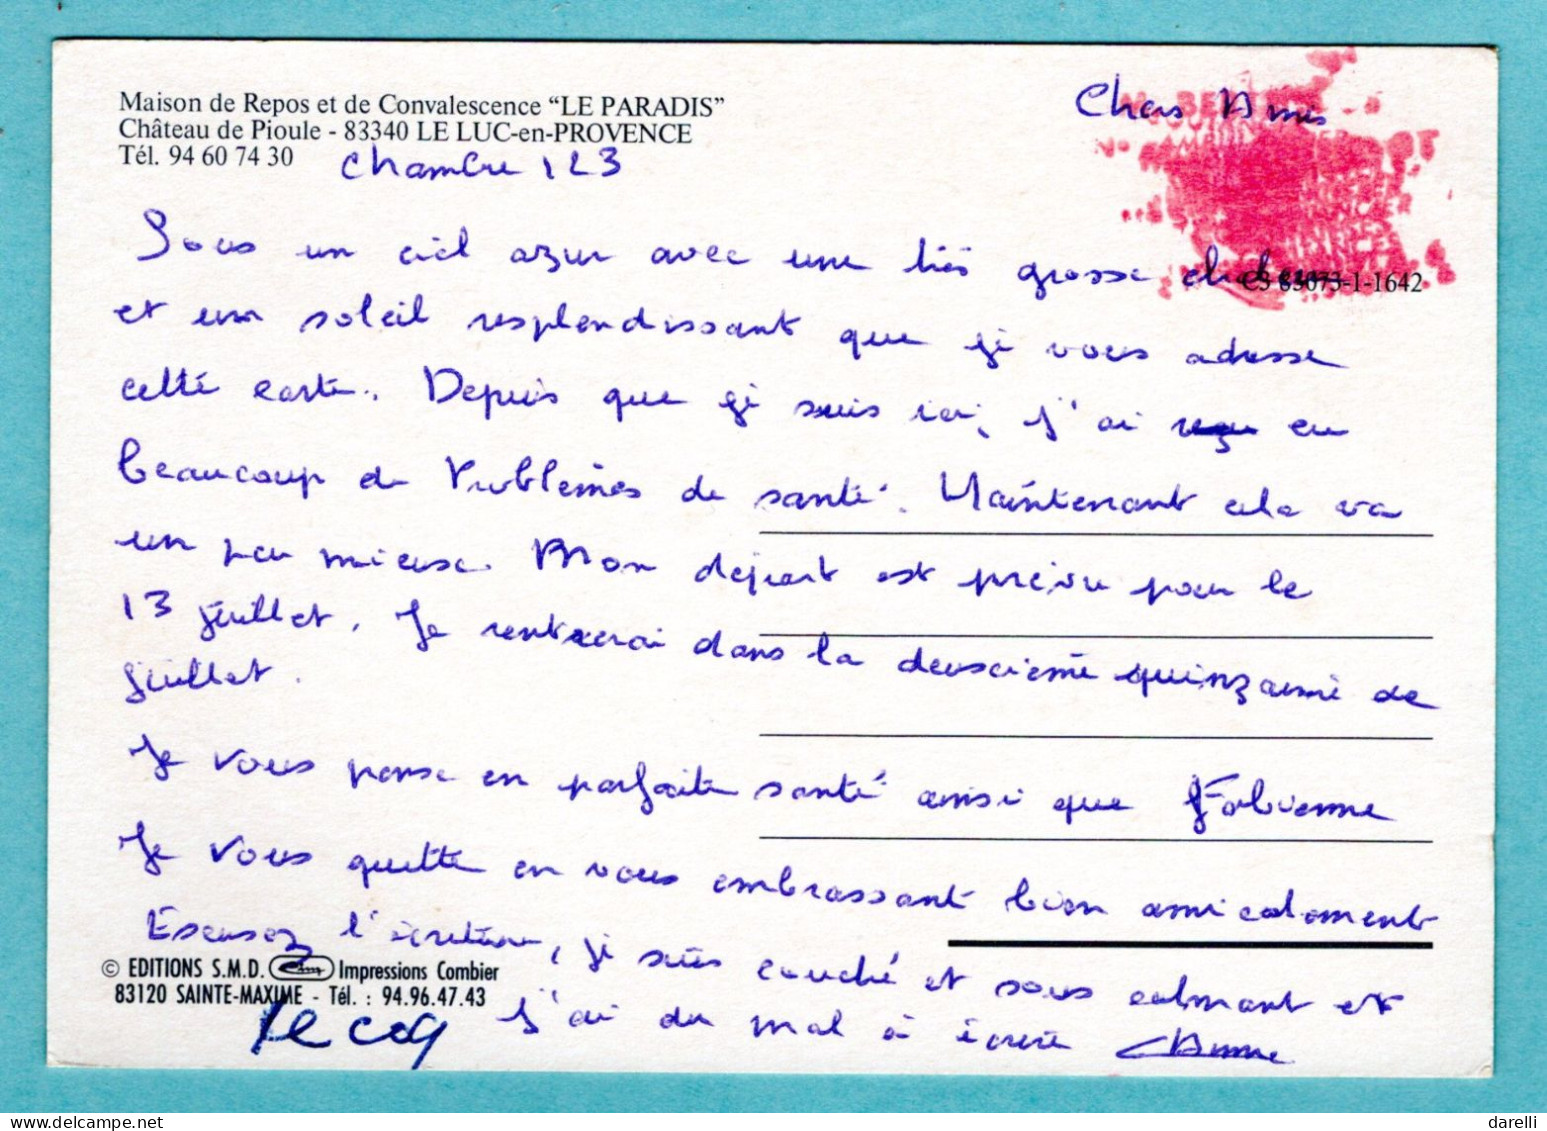 Maison de Repos et de Convalescence “LE PARADIS”
Château de Pioule - 83340 LE LUC-en-PROVENCE
Tél. 94 60 74 30
Chambre 123
Chers Amis
CS 83073-1-1642
Sous un ciel azur avec une très grosse
et un soleil resplendissant que je vous adresse
cette carte. Depuis que je suis ici, j'ai eu
beaucoup de Problèmes de santé. Maintenant cela va
un peu mieux. Mon départ est prévu pour le
13 juillet. Je rentrerai dans la deuxième quinzaine de
juillet.
Je vous pense en parfaite santé ainsi que Fabienne
Je vous quitte en vous embrassant bien amicalement
Excusez l'écriture, je suis couché et sous calmant et
j'ai du mal à écrire
© EDITIONS S.M.D. Cim Impressions Combier
83120 SAINTE-MAXIME - Tél. : 94.96.47.43
Le coq
darelli